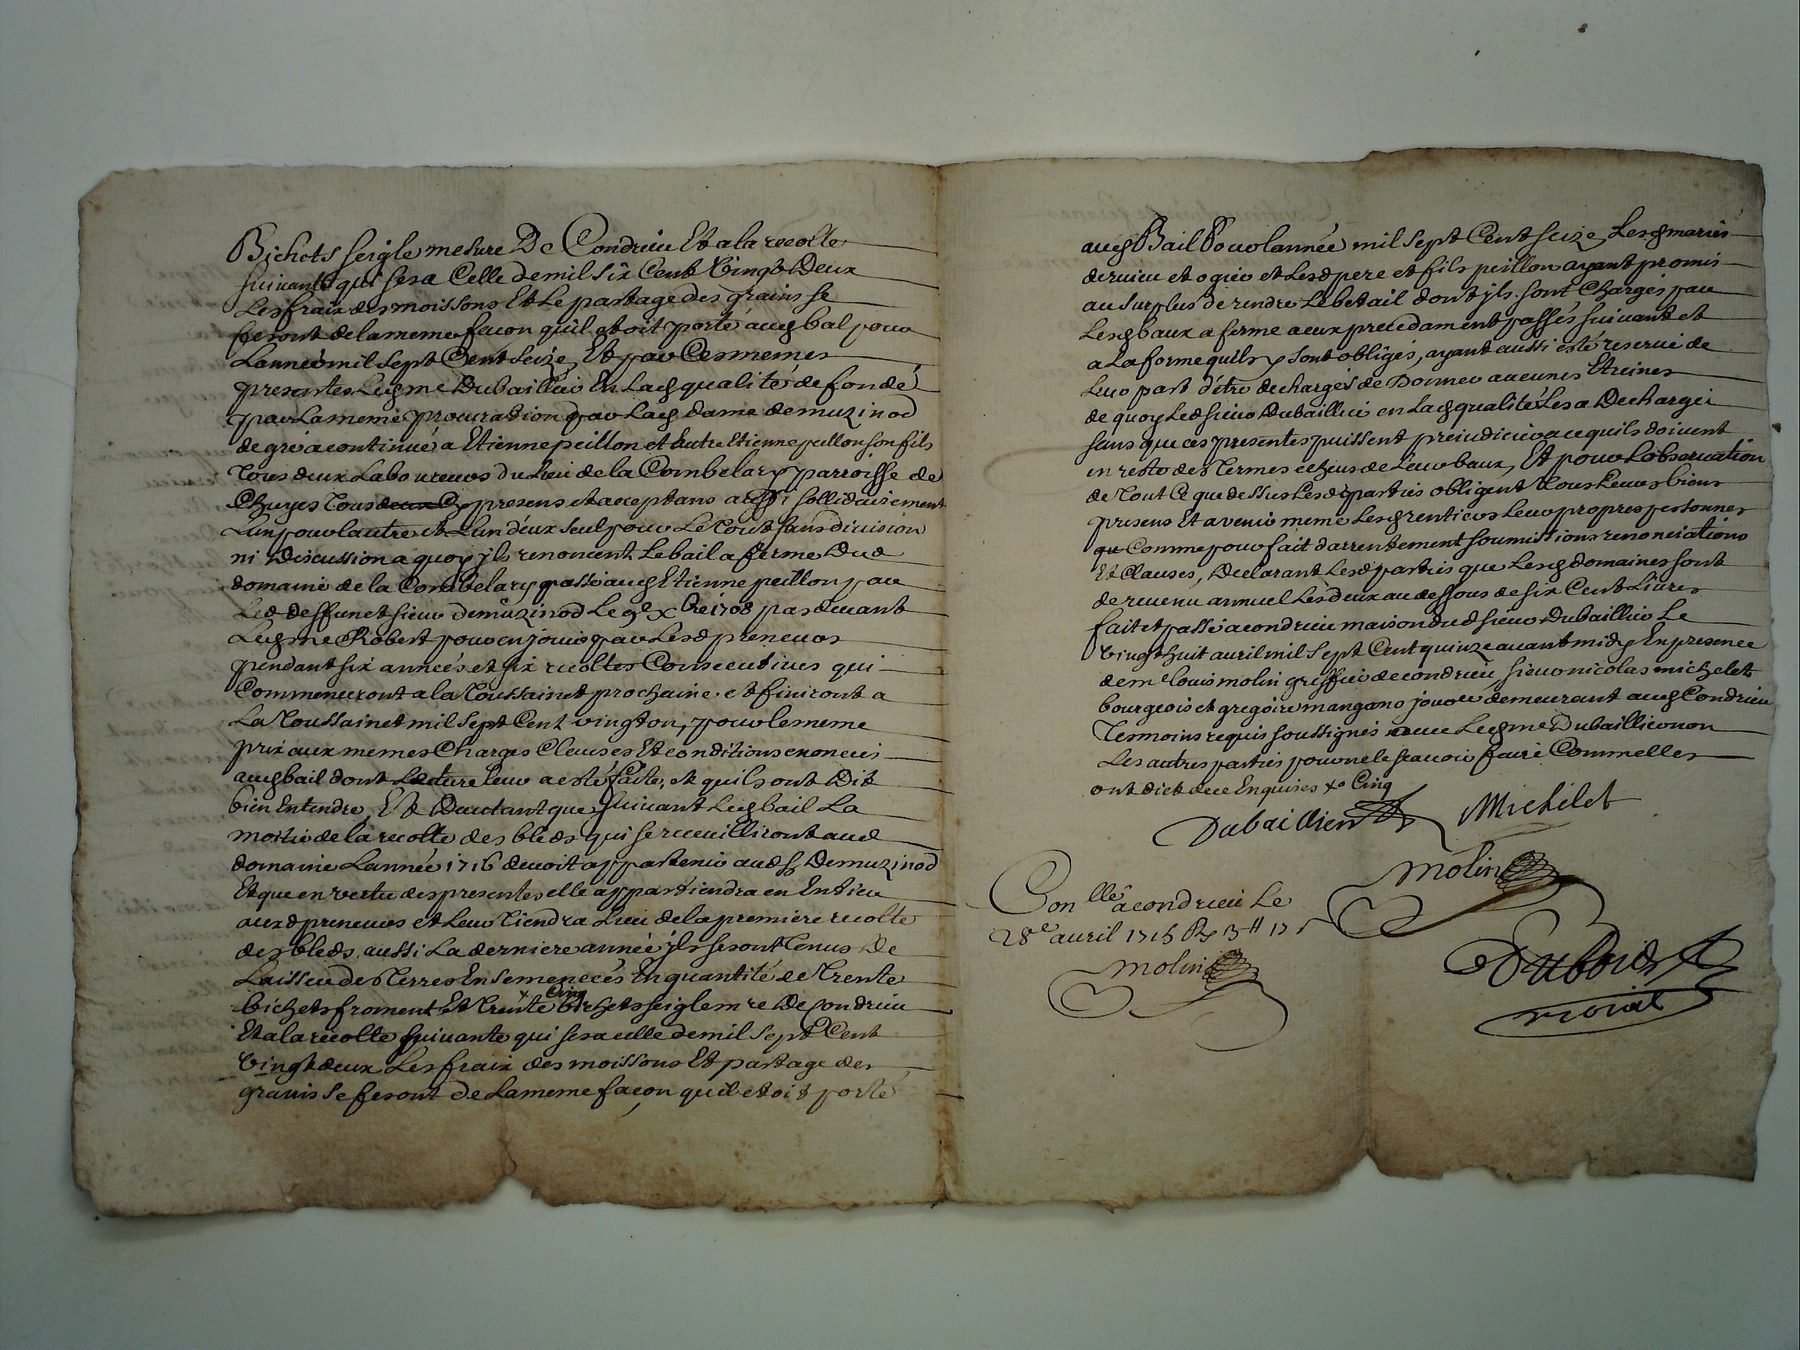 Bichets seigle mesure De Condrieu Et a la recolte
suivante qui sera Celle de mil six Cent Vingt Deux
Les frais des moissons Et Le partage des grains se
feront de la meme facon quil etoit porté aud bal pour
Lannee mil sept Cent seize, Et par Ces memes
presentes Led me Dubaillier En Lad qualité de fondé
par La meme procuration par Lad dame demuzinod
de gré a continué a Etienne peillon et autre Etienne peillon son fils
Tous deux Laboureurs du Lieu de la Combelary parroisse de
Chuyes Tous presens et acceptans aussi sollidairement
Lun pour lautre et Lun deux seul pour Le Tout sans division
ni Discussion a quoy jls renoncent Le bail a ferme Dud
domaine de la Combelary passé aud Etienne peillon par
Led deffunct sieur demuzinod Le 9e xbre 1708 pardevant
Led me Robert pour en jouir par Lesd preneurs
pendant six années et six recoltes Consecutives qui
Commenceront a la Toussainct prochaine et finiront a
La Toussainct mil sept Cent vingt on, pour le meme
prix aux memes Charges Clauses Et conditions enoncés
aud bail dont Lecture leur a esté faite, et quils ont Dit
bien Entendre, Et Dautant que suivant Led bail La
moitié de la recolte des bleds qui se recueilliront aud
domaine Lannée 1716 devoit appartenir aud sr Demuzinod
Et que en vertu des presentes elle appartiendra en Entier
auxd preneurs et Leur Tiendra Lieu de la premiere recolte
des bleds, aussi La derniere année jls seront Tenus De
Laisser des Terres Ensemencés En quantité de Trente
Cinq
bichets froment Et Trente bichets seigle mre De Condrieu
Et a la recolte suivante qui sera celle de mil sept Cent
Vingt deux Les frais des moissons Et partage des
grains se feront de La meme facon quil etoit porté
aud Bail Pour lannée mil sept Cent seize, Lesd mariés
dervieu et ogier et Lesd pere et fils peillon ayant promis
au surplus de rendre Le betail dont jls sont Chargés par
Lesd baux a ferme a eux precedament passés suivant et
a La forme quils y sont obligés, ayant aussi esté reservé de
Leur part d'être dechargés de Donner aucunes Etreines
de quoy Led sieur Dubaillier en Lad qualité Les a Dechargé
sans que ces presentes puissent prejudicier a ce quils doivent
en reste des Termes echeus de Leur baux, Et pour Lobservation
de Tout Ce que dessus Lesd parties obligent Tous Leurs biens
presens Et avenir meme Lesd rentiers Leur propres personnes
Comme pour fait darrentement soumissions renonciations
Et Clauses, Declarant Lesd parties que Lesd domaines sont
de revenu annuel Les deux au dessous de six Cent Livres
fait et passé a condrieu maison dud sieur Dubaillier Le
Vingt huit avril mil sept Cent quinze avant midy En presence
de me Louis molin greffier de condrieu sieur nicolas michelet
bourgeois et gregoire mangano demeurant aud Condrieu
Tesmoins requis soussignés avec Led me Dubaillier non
Les autres parties pour ne le scavoir faire Comme elles
ont dict de ce Enquises xo Cinq
Dubaillier Michelet
molin
Conllé a condrieu Le
28e avril 1715
molin
Duboid